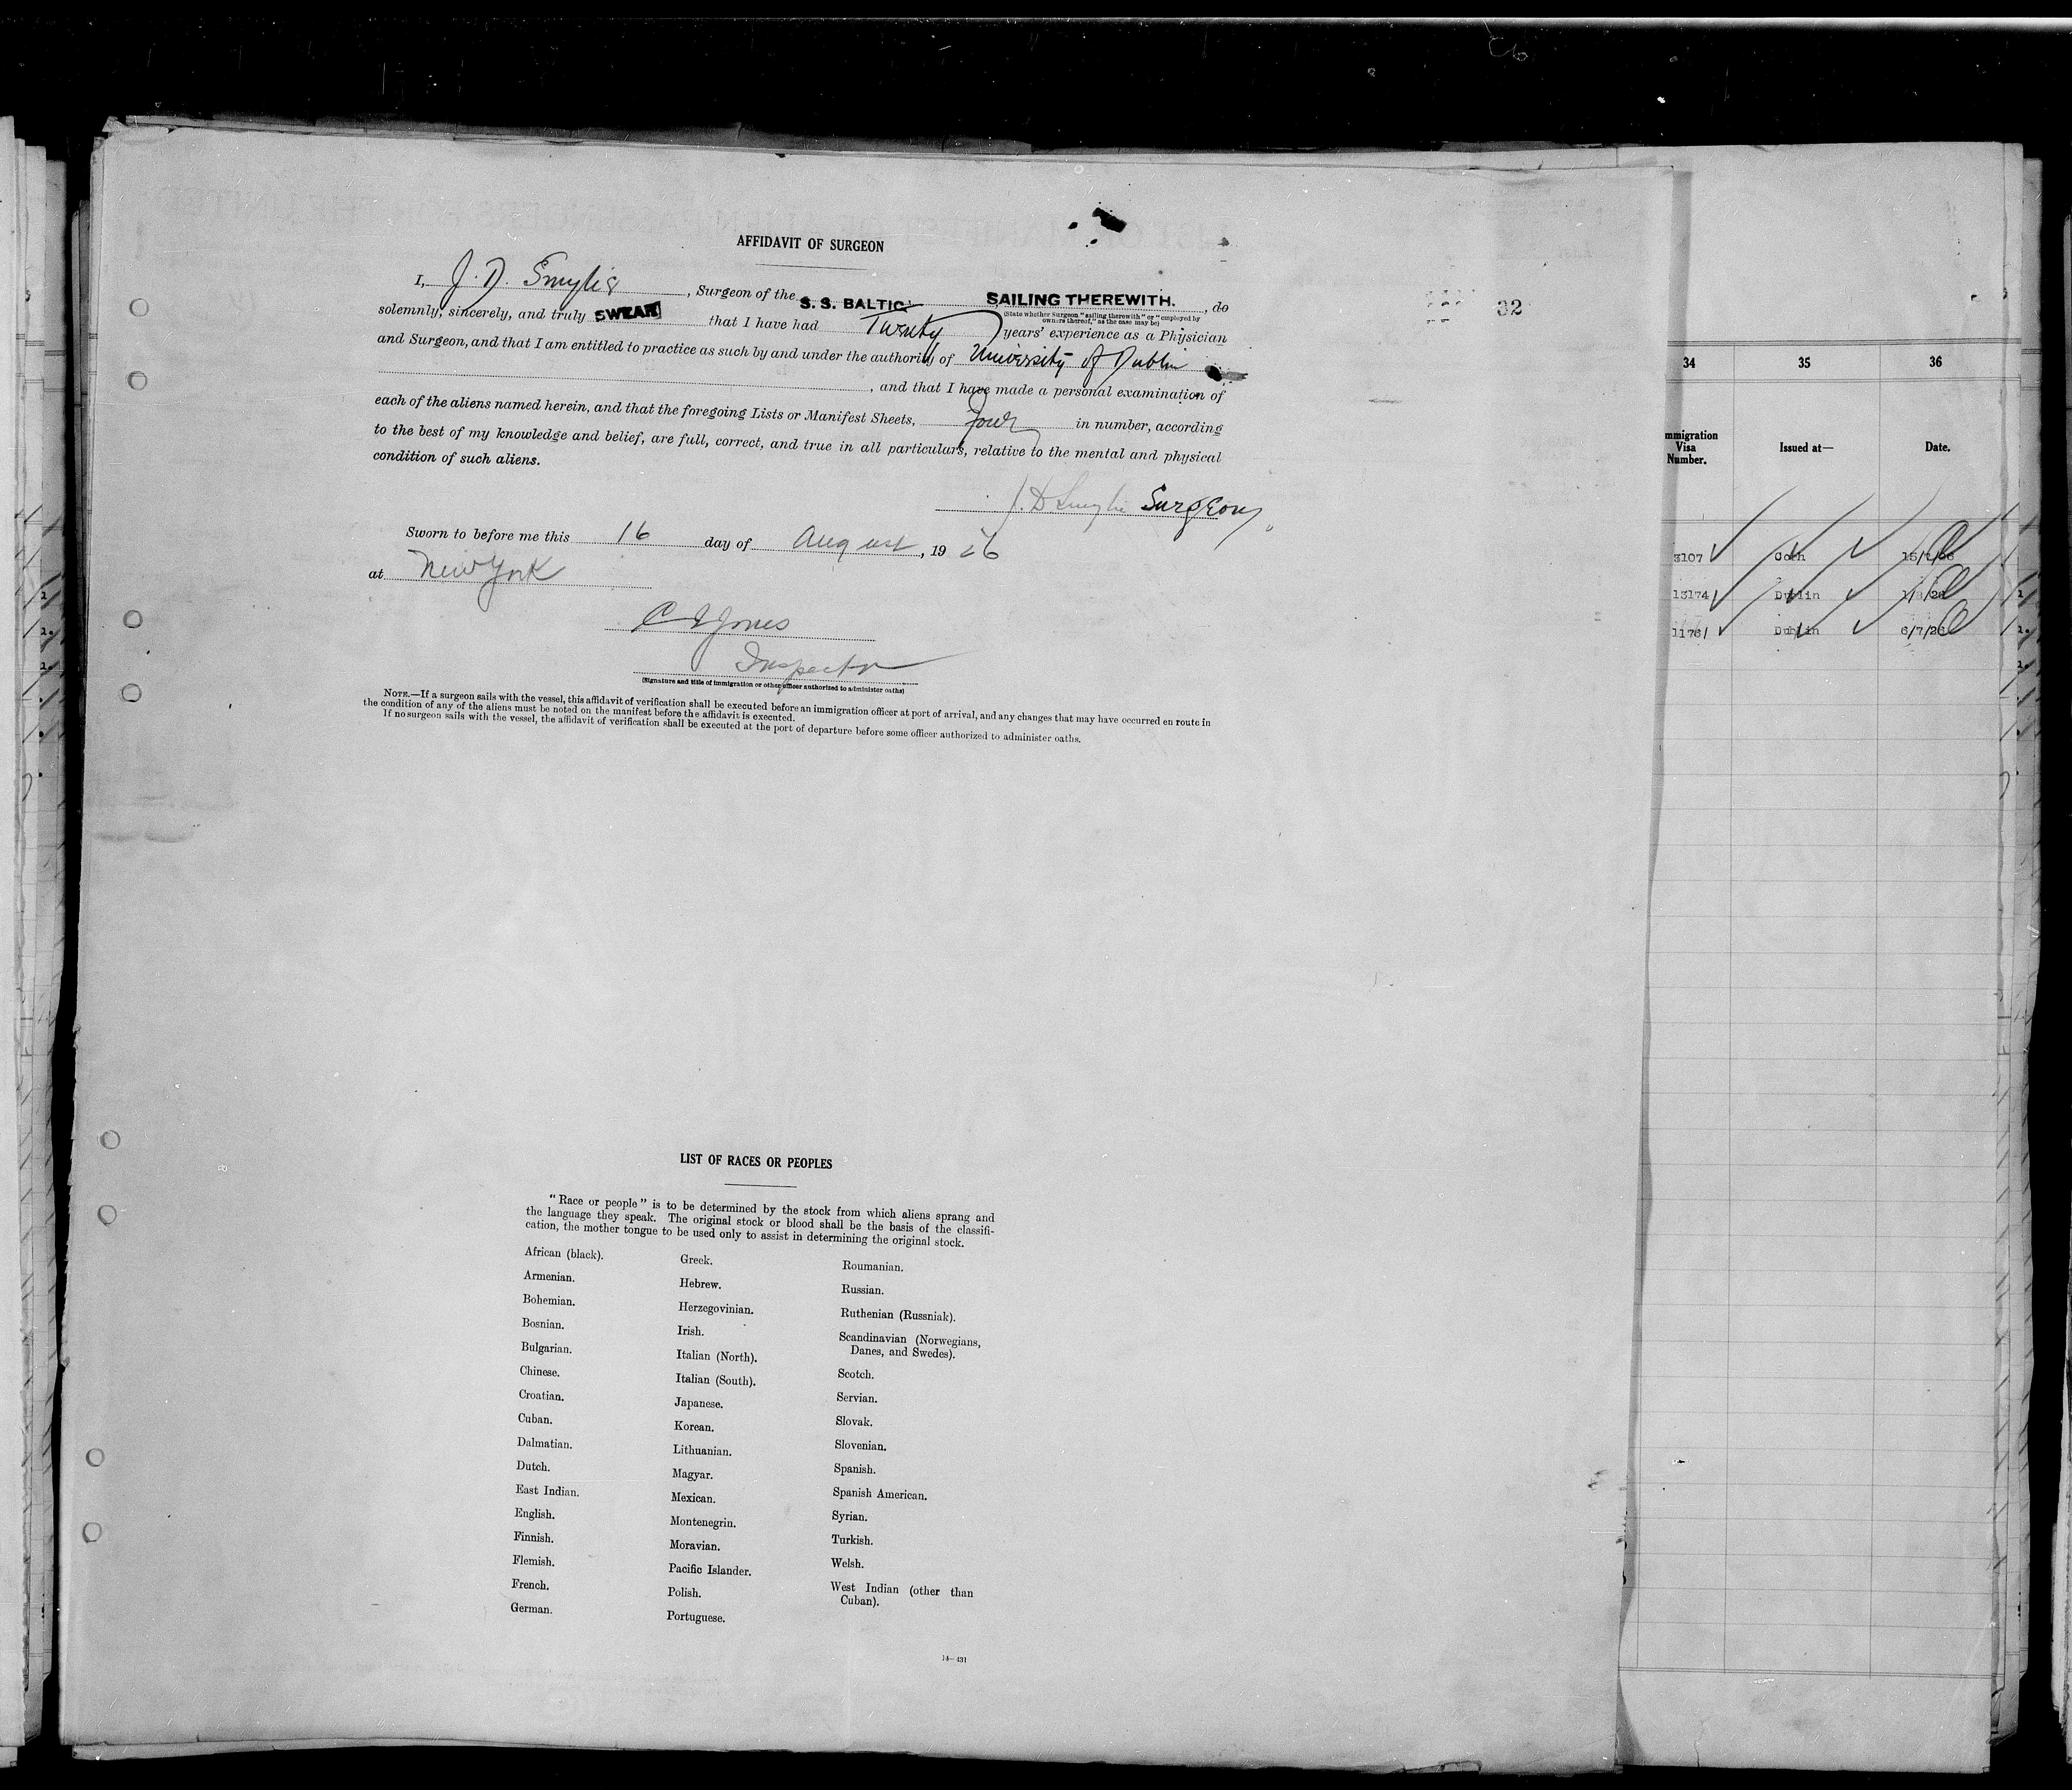 AFFIDAVIT OF SURGEON
I, J. D. Smylie, Surgeon of the S. S. BALTIC SAILING THEREWITH., do
(State whether Surgeon "sailing therewith" or "employed by
owners thereof," as the case may be)
solemnly, sincerely, and truly SWEAR that I have had Twenty years' experience as a Physician
and Surgeon, and that I am entitled to practice as such by and under the authority of University of Dublin
, and that I have made a personal examination of
each of the aliens named herein, and that the foregoing Lists or Manifest Sheets, four in number, according
to the best of my knowledge and belief, are full, correct, and true in all particulars, relative to the mental and physical
condition of such aliens.
J. D Smylie Surgeon
Sworn to before me this 16 day of August, 19 26
at New York
Jones
Inspector
(Signature and title of immigration or other officer authorized to administer oaths)
NOTE.—If a surgeon sails with the vessel, this affidavit of verification shall be executed before an immigration officer at port of arrival, and any changes that may have occurred en route in
the condition of any of the aliens must be noted on the manifest before the affidavit is executed.
If no surgeon sails with the vessel, the affidavit of verification shall be executed at the port of departure before some officer authorized to administer oaths.
LIST OF RACES OR PEOPLES
"Race or people" is to be determined by the stock from which aliens sprang and
the language they speak. The original stock or blood shall be the basis of the classifi-
cation, the mother tongue to be used only to assist in determining the original stock.
African (black).
Armenian.
Bohemian.
Bosnian.
Bulgarian.
Chinese.
Croatian.
Cuban.
Dalmatian.
Dutch.
East Indian.
English.
Finnish.
Flemish.
French.
German.
Greek.
Hebrew.
Herzegovinian.
Irish.
Italian (North).
Italian (South).
Japanese.
Korean.
Lithuanian.
Magyar.
Mexican.
Montenegrin.
Moravian.
Pacific Islander.
Polish.
Portuguese.
Roumanian.
Russian.
Ruthenian (Russniak).
Scandinavian (Norwegians,
Danes, and Swedes).
Scotch.
Servian.
Slovak.
Slovenian.
Spanish.
Spanish American.
Syrian.
Turkish.
Welsh.
West Indian (other than
Cuban).
14—431
32
34 35 36
mmigration
Visa
Number.
Issued at—
Date.
3107 Cobh
13174 Dublin
1176 Dublin 6/7/26